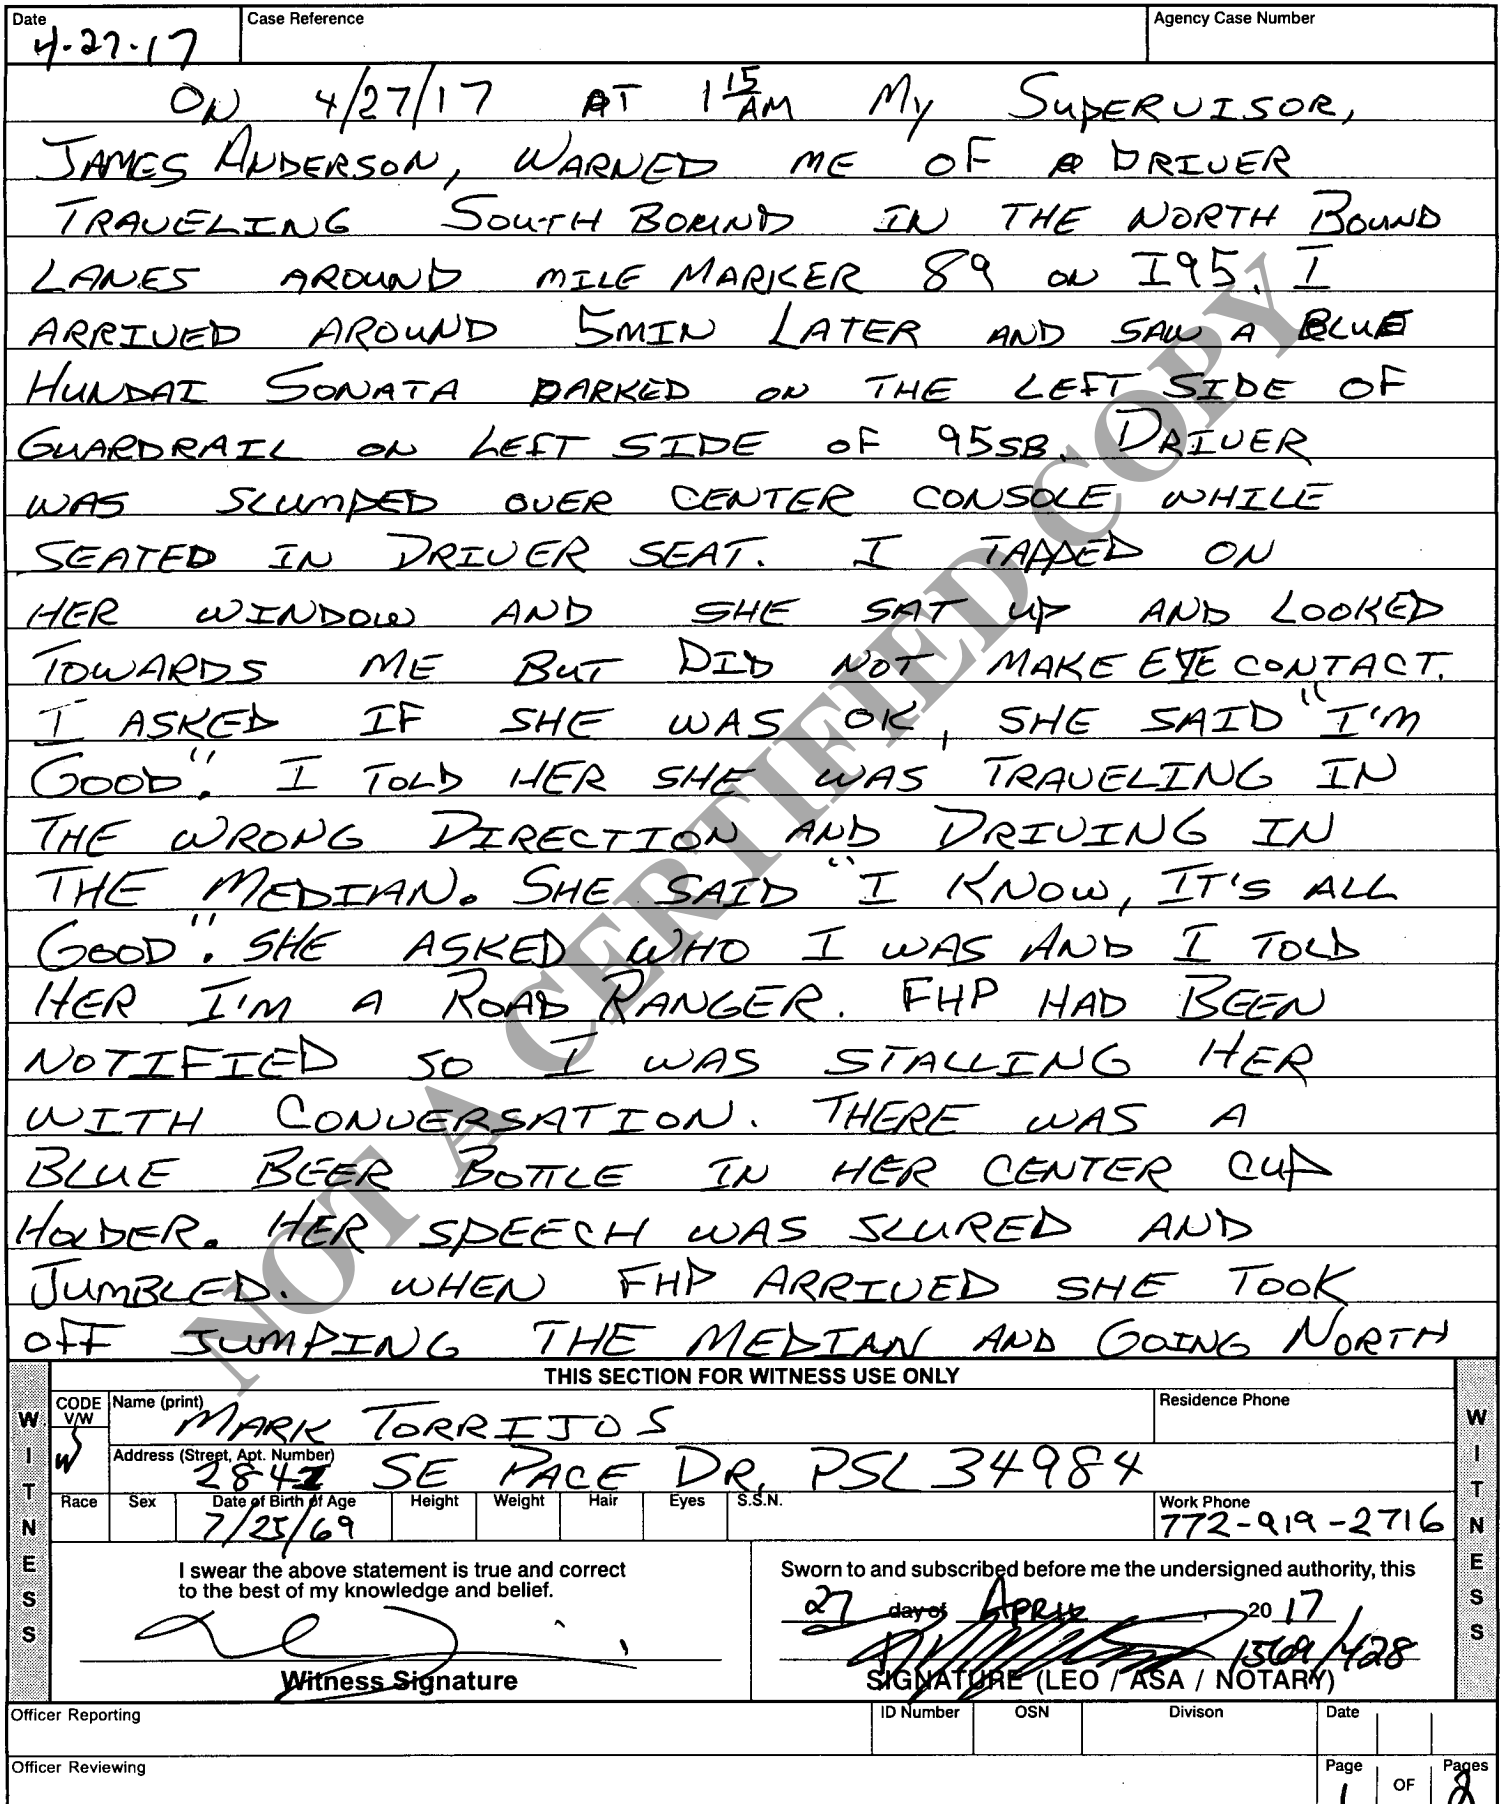 Date
Case Reference
Agency Case Number
4-27-17
ON 4/27/17 AT 1 15 AM MY SUPERVISOR,
JAMES ANDERSON, WARNED ME OF A DRIVER
TRAVELING SOUTH BOUND IN THE NORTH BOUND
LANES AROUND MILE MARKER 89 ON I95. I
ARRIVED AROUND 5MIN LATER AND SAW A BLUE
HUNDAI SONATA PARKED ON THE LEFT SIDE OF
GUARDRAIL ON LEFT SIDE OF 95SB. DRIVER
WAS SLUMPED OVER CENTER CONSOLE WHILE
SEATED IN DRIVER SEAT. I TAPPED ON
HER WINDOW AND SHE SAT UP AND LOOKED
TOWARDS ME BUT DID NOT MAKE EYE CONTACT.
I ASKED IF SHE WAS OK, SHE SAID "I'M
GOOD". I TOLD HER SHE WAS TRAVELING IN
THE WRONG DIRECTION AND DRIVING IN
THE MEDIAN. SHE SAID "I KNOW, IT'S ALL
GOOD". SHE ASKED WHO I WAS AND I TOLD
HER I'M A ROAD RANGER. FHP HAD BEEN
NOTIFIED SO I WAS STALLING HER
WITH CONVERSATION. THERE WAS A
BLUE BEER BOTTLE IN HER CENTER CUP
HOLDER. HER SPEECH WAS SLURED AND
JUMBLED. WHEN FHP ARRIVED SHE TOOK
OFF JUMPING THE MEDIAN AND GOING NORTH
NOT A CERTIFIED COPY
THIS SECTION FOR WITNESS USE ONLY
WITNESS
WITNESS
CODE V/W
W
Name (print)
MARK TORRIJOS
Residence Phone
Address (Street, Apt. Number)
2841 SE PACE DR, PSL 34984
Race Sex Date of Birth of Age Height Weight Hair Eyes S.S.N. Work Phone
7/25/69 772-919-2716
I swear the above statement is true and correct
to the best of my knowledge and belief.
Witness Signature
Sworn to and subscribed before me the undersigned authority, this
27 day of APRIL, 20 17
1569/428
SIGNATURE (LEO / ASA / NOTARY)
Officer Reporting ID Number OSN Divison Date
Officer Reviewing Page Pages
1 OF 2